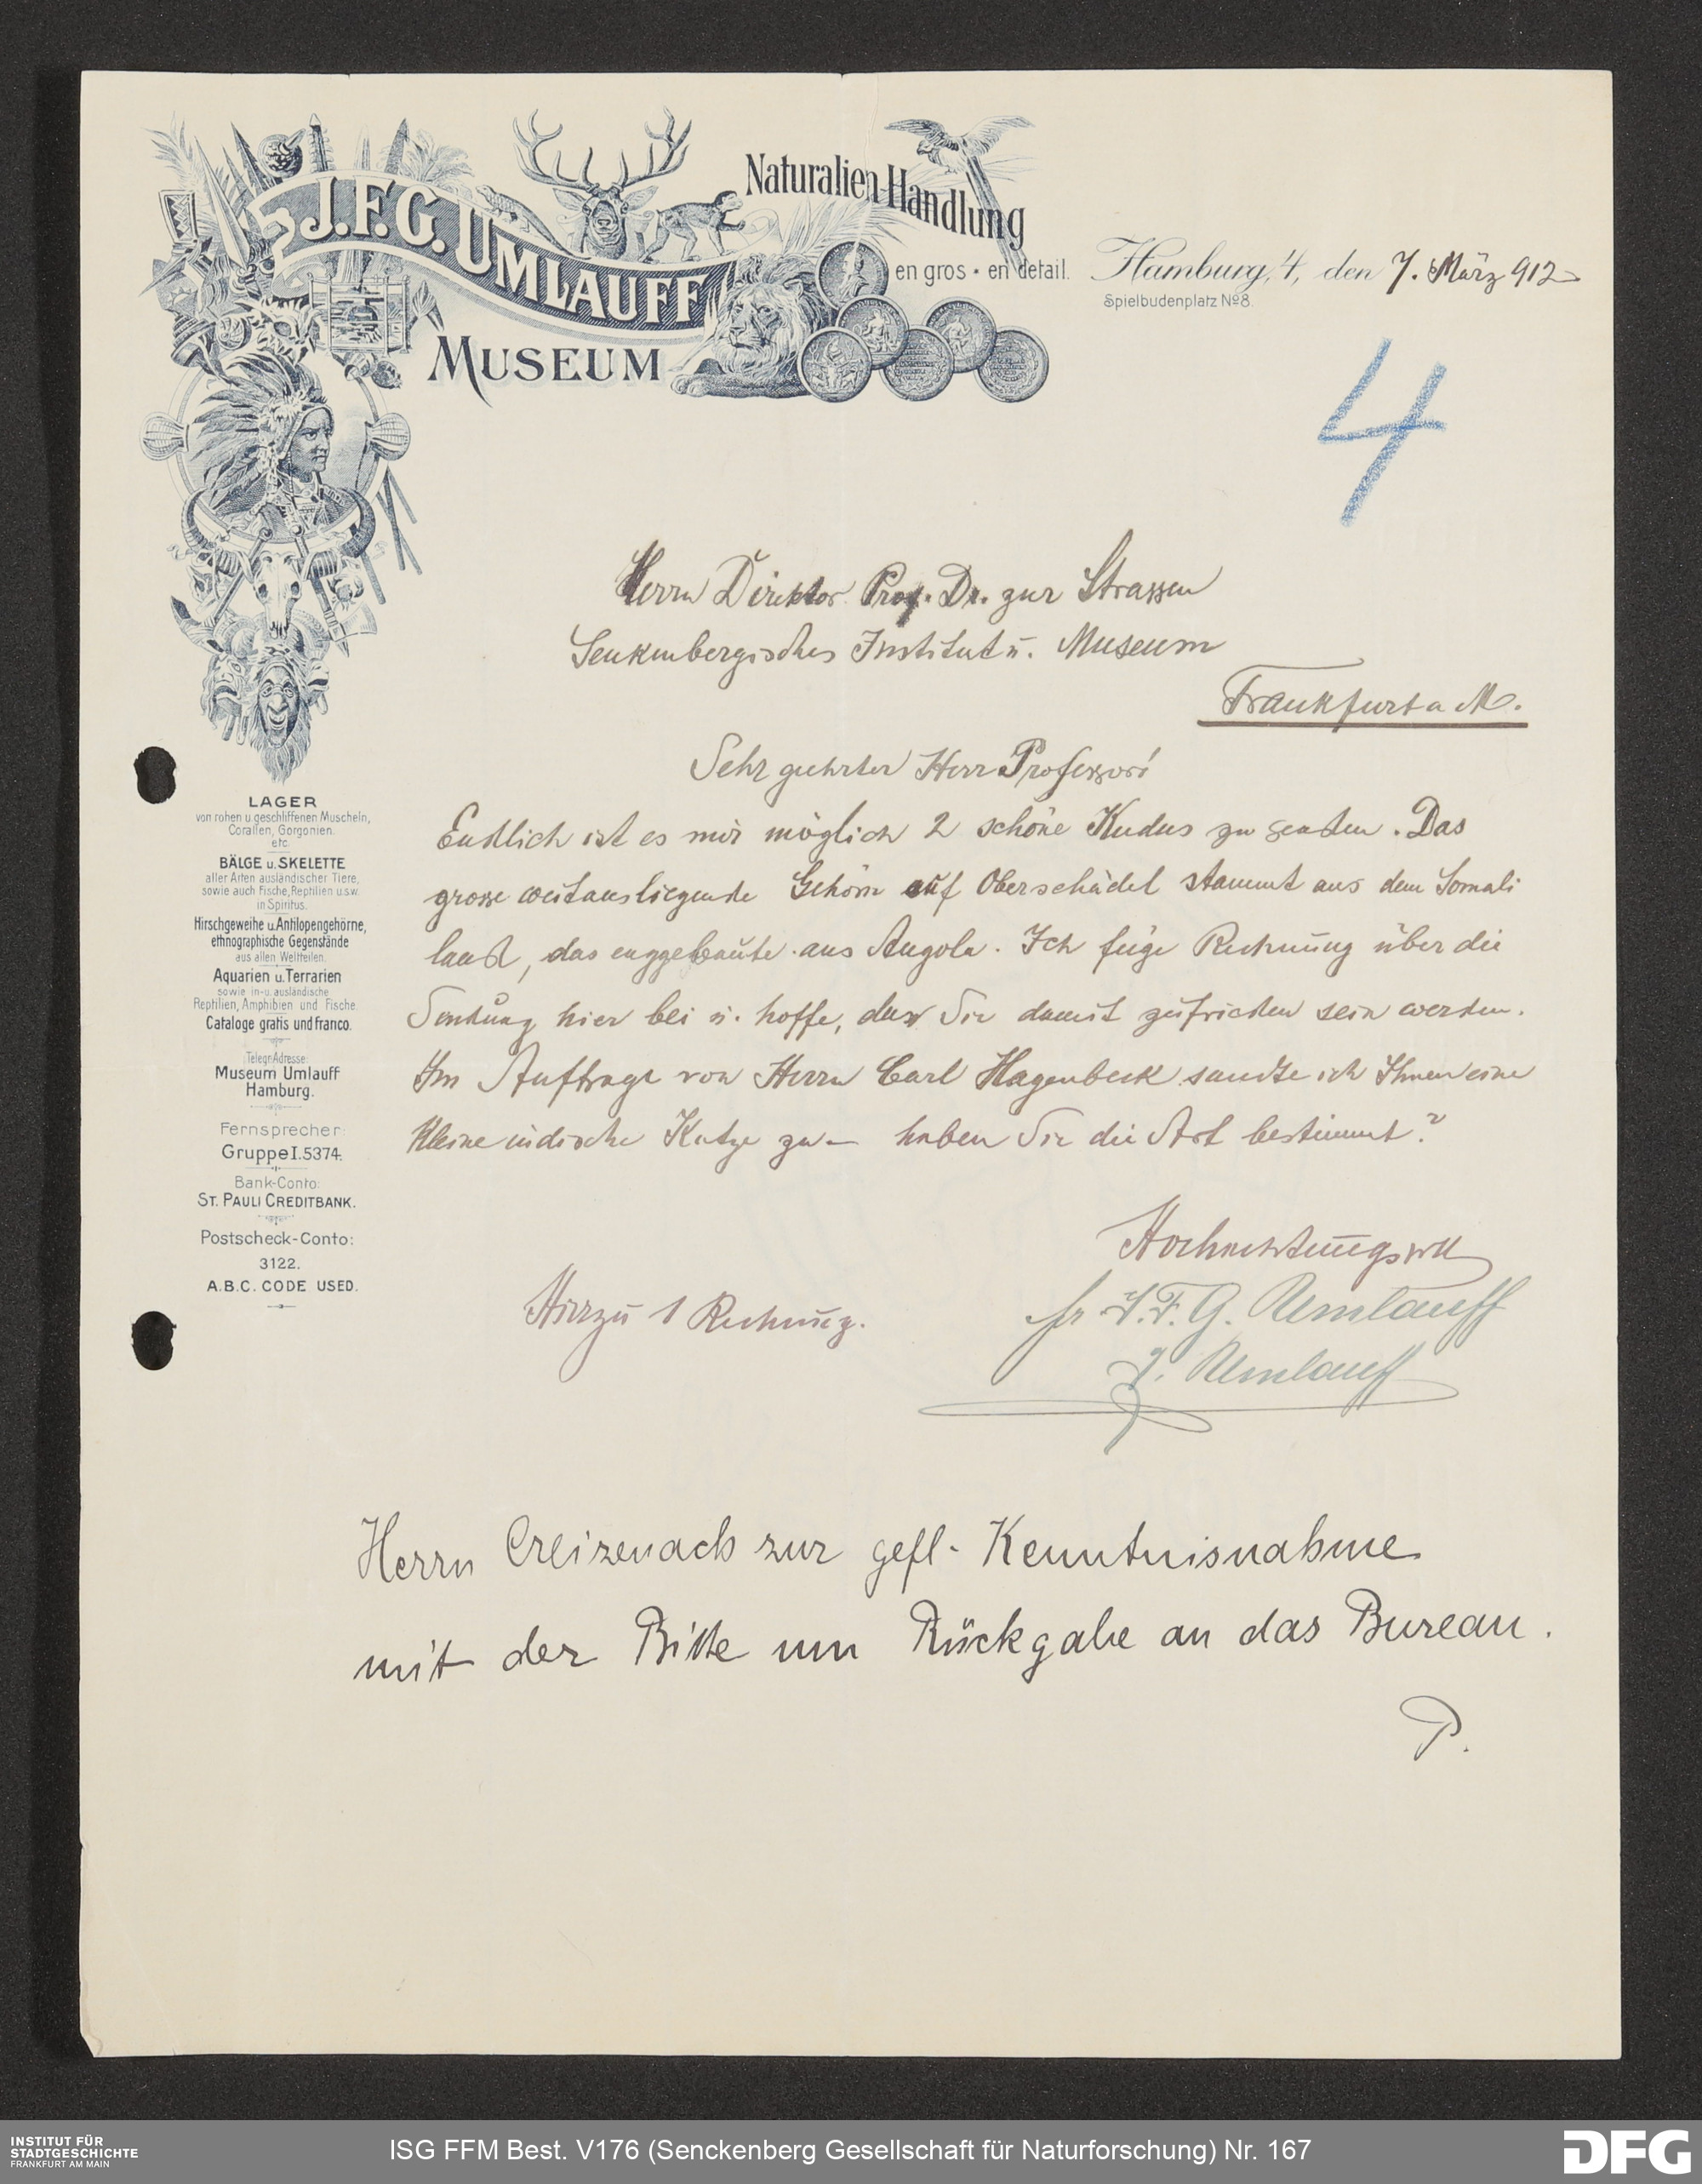 J.F.G. UMLAUFF
MUSEUM
Naturalien-Handlung
en gros • en detail.
Hamburg, 4, den 7. März 912
Spielbudenplatz No 8.
4
Herrn Direktor Prof. Dr. zur Strassen
Senkenbergisches Institut u. Museum
Frankfurt a M.
Sehr geehrter Herr Professor!
Endlich ist es mir möglich 2 schöne Kudus zu senden. Das
grosse weitausliegende Gehörn auf Oberschädel stammt aus dem Somali
land, das enggebaute aus Angola. Ich füge Rechnung über die
Sendung hier bei u. hoffe, dass Sie damit zufrieden sein werden.
Im Auftrage von Herrn Carl Hagenbeck sandte ich Ihnen eine
kleine indische Katze zu — haben Sie die Art bestimmt?
Hochachtungsvoll
Hierzu 1 Rechnung.
fr J.F.G. Umlauff
J. Umlauff
LAGER
von rohen u. geschliffenen Muscheln,
Corallen, Gorgonien.
etc.
BÄLGE u. SKELETTE
aller Arten ausländischer Tiere,
sowie auch Fische, Reptilien u.s.w.
in Spiritus.
Hirschgeweihe u. Antilopengehörne,
ethnographische Gegenstände
aus allen Weltteilen.
Aquarien u. Terrarien
sowie in- u. ausländische
Reptilien, Amphibien und Fische.
Cataloge gratis und franco.
Telegr. Adresse:
Museum Umlauff
Hamburg.
Fernsprecher:
Gruppe I. 5374.
Bank-Conto:
ST. PAULI CREDITBANK.
Postscheck-Conto:
3122.
A.B.C. CODE USED.
Herrn Creizenach zur gefl. Kenntnisnahme
mit der Bitte um Rückgabe an das Bureau.
P.
INSTITUT FÜR
STADTGESCHICHTE
FRANKFURT AM MAIN
ISG FFM Best. V176 (Senckenberg Gesellschaft für Naturforschung) Nr. 167
DFG